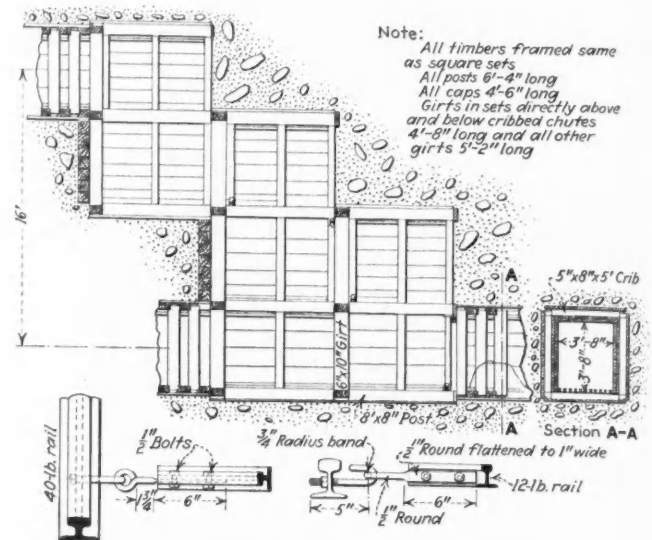 Note:
All timbers framed same
as square sets
All posts 6'-4" long
All caps 4'-6" long
Girts in sets directly above
and below cribbed chutes
4'-8" long and all other
girts 5'-2" long
16'
A
5"x8"x5' Crib
3'-8"
3'-8"
6"x10" Girt
8"x8" Post
A
Section A-A
40-lb. rail
1/2" Bolts
1 3/4"
6"
3/4" Radius band
1/2" Round flattened to 1" wide
12-lb. rail
5"
1/2" Round
6"